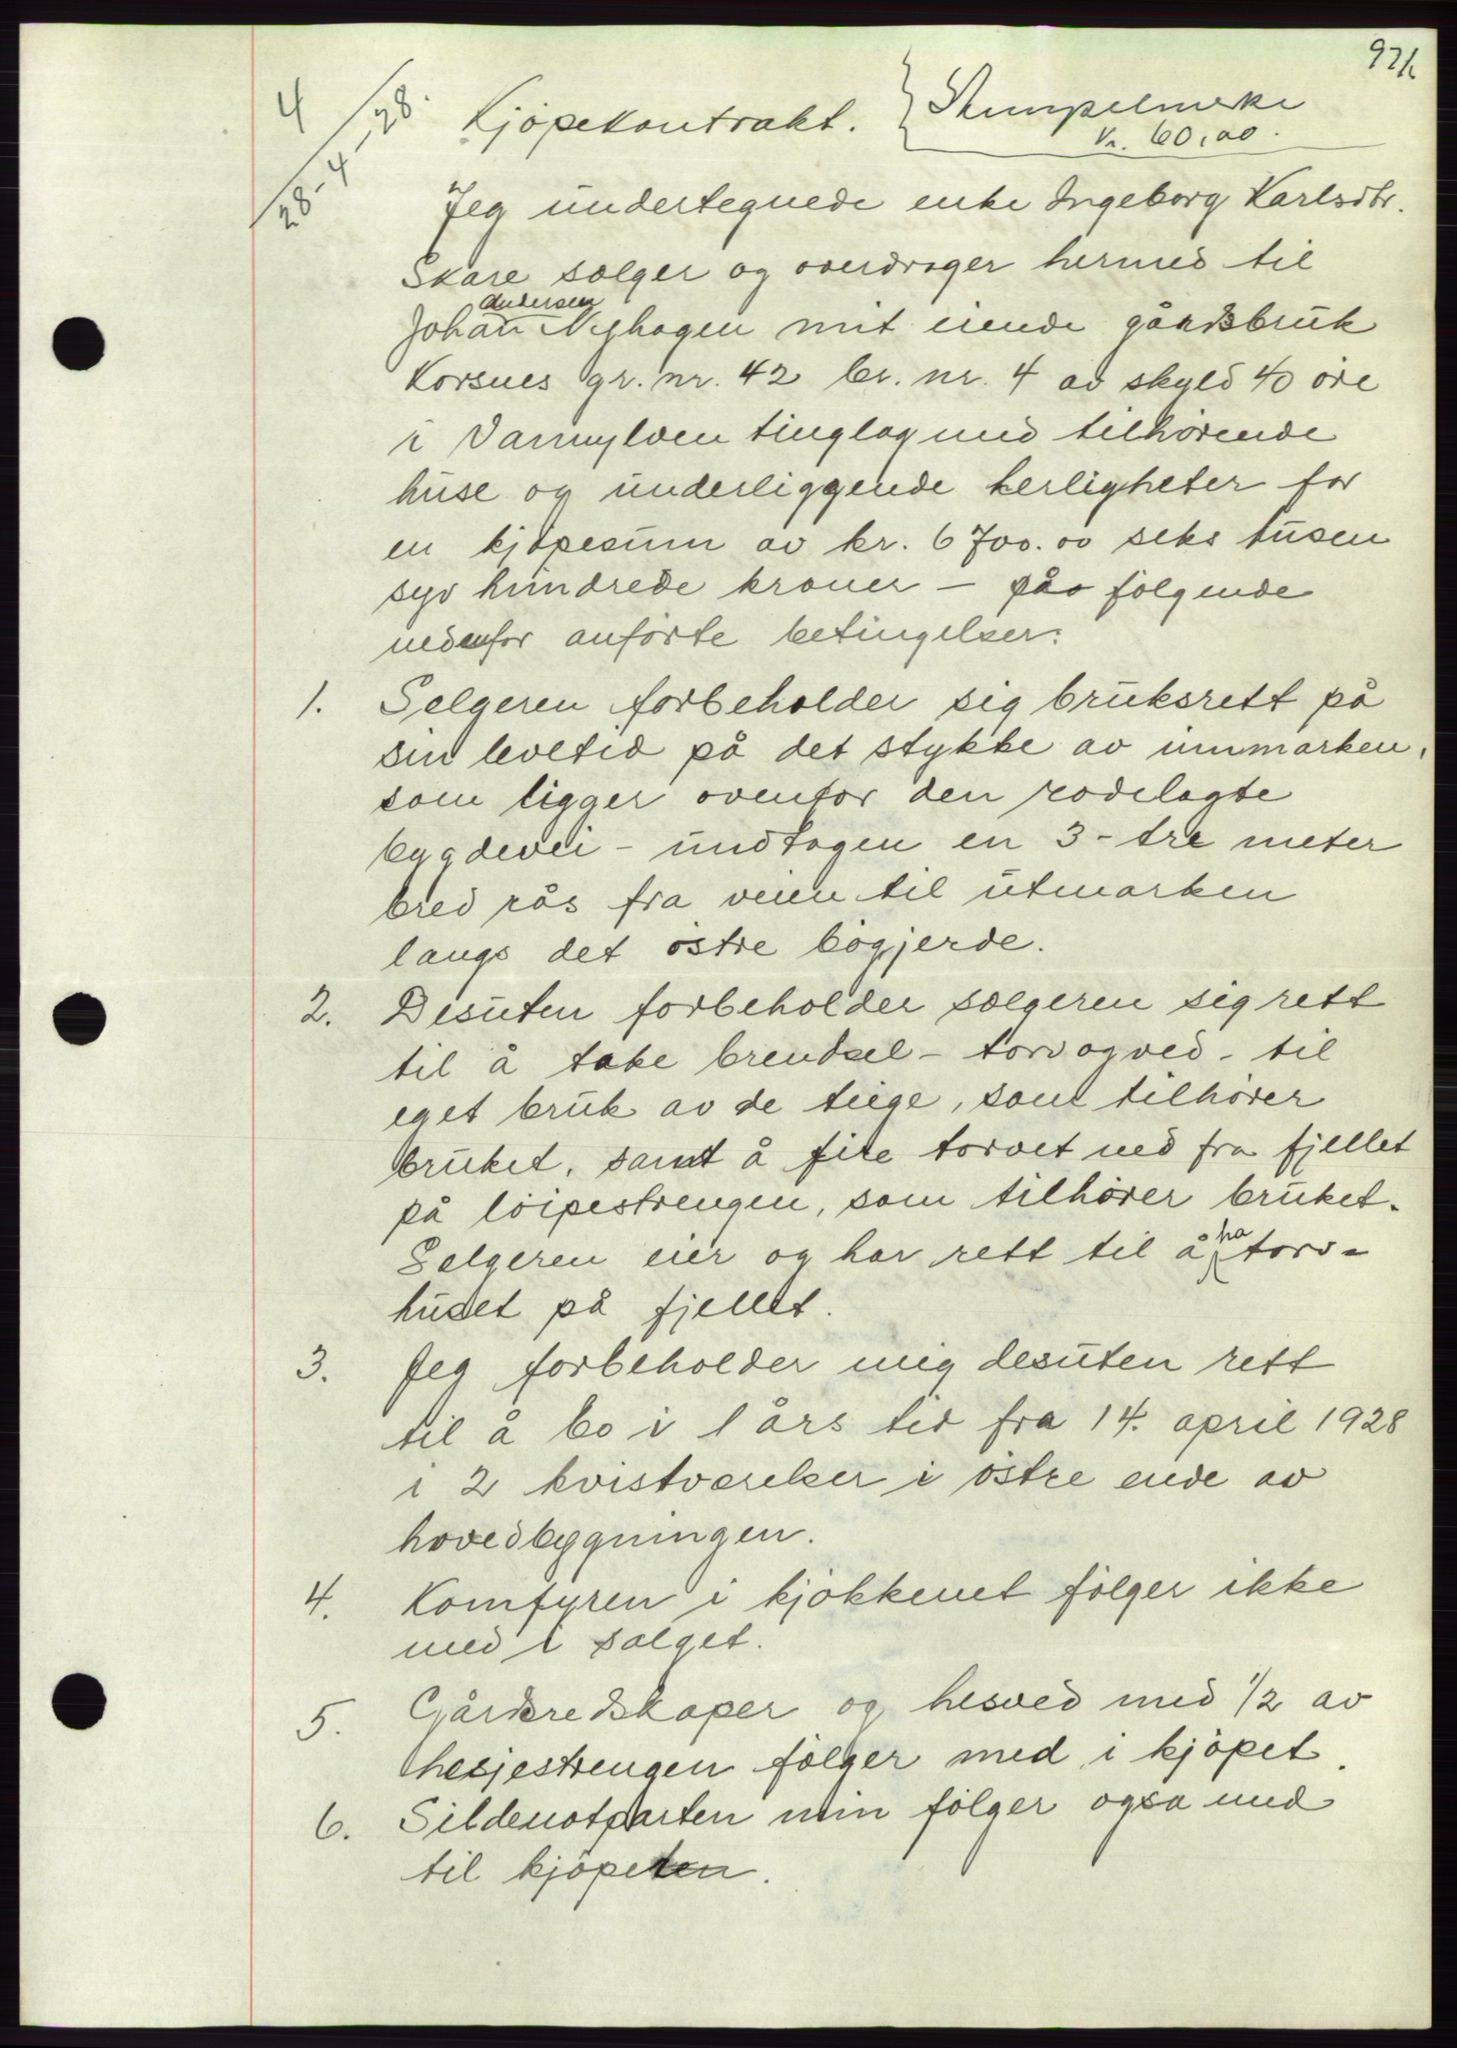 97/1
4
28-4-28.
Kjöpekontrakt.
Stempelmerke
Kr. 60,00.
Jeg undertegnede enke Ingeborg Karlsdtr.
Skare sælger og overdrager hermed til
Andersen
Johan Nyhagen mit eiende gårdsbruk
Korsnes gr. nr. 42 br. nr. 4 av skyld 40 øre
i Vannylven tinglag med tilhörende
huse og underliggende herligheter for
en kjöpesum av kr. 6700.00 seks tusen
syv hundrede kroner - på følgende
nedenfor anførte betingelser:
1. Selgeren forbeholder sig bruksrett på
sin levetid på det stykke av innmarken,
som ligger ovenfor den rodelagte
bygdevei - undtagen en 3 - tre meter
bred rås fra veien til utmarken
langs det östre bögjerde.
2. Desuten forbeholder sælgeren sig rett
til å take brendsel - torv og ved - til
eget bruk av de teige, som tilhører
bruket, samt å fire torvet ned fra fjellet
på löipestrengen, som tilhører bruket.
Selgeren eier og har rett til å ha torv-
huset på fjellet.
3. Jeg forbeholder mig desuten rett
til å bo i 1 års tid fra 14. april 1928
i 2 kvistværelser i östre ende av
hovedbygningen.
4. Komfyren i kjøkkenet fölger ikke
med i salget.
5. Gårdsredskaper og hesved med 1/2 av
hesjestrengen fölger med i kjöpet.
6. Sildenotparten min fölger også med
til kjöpet.